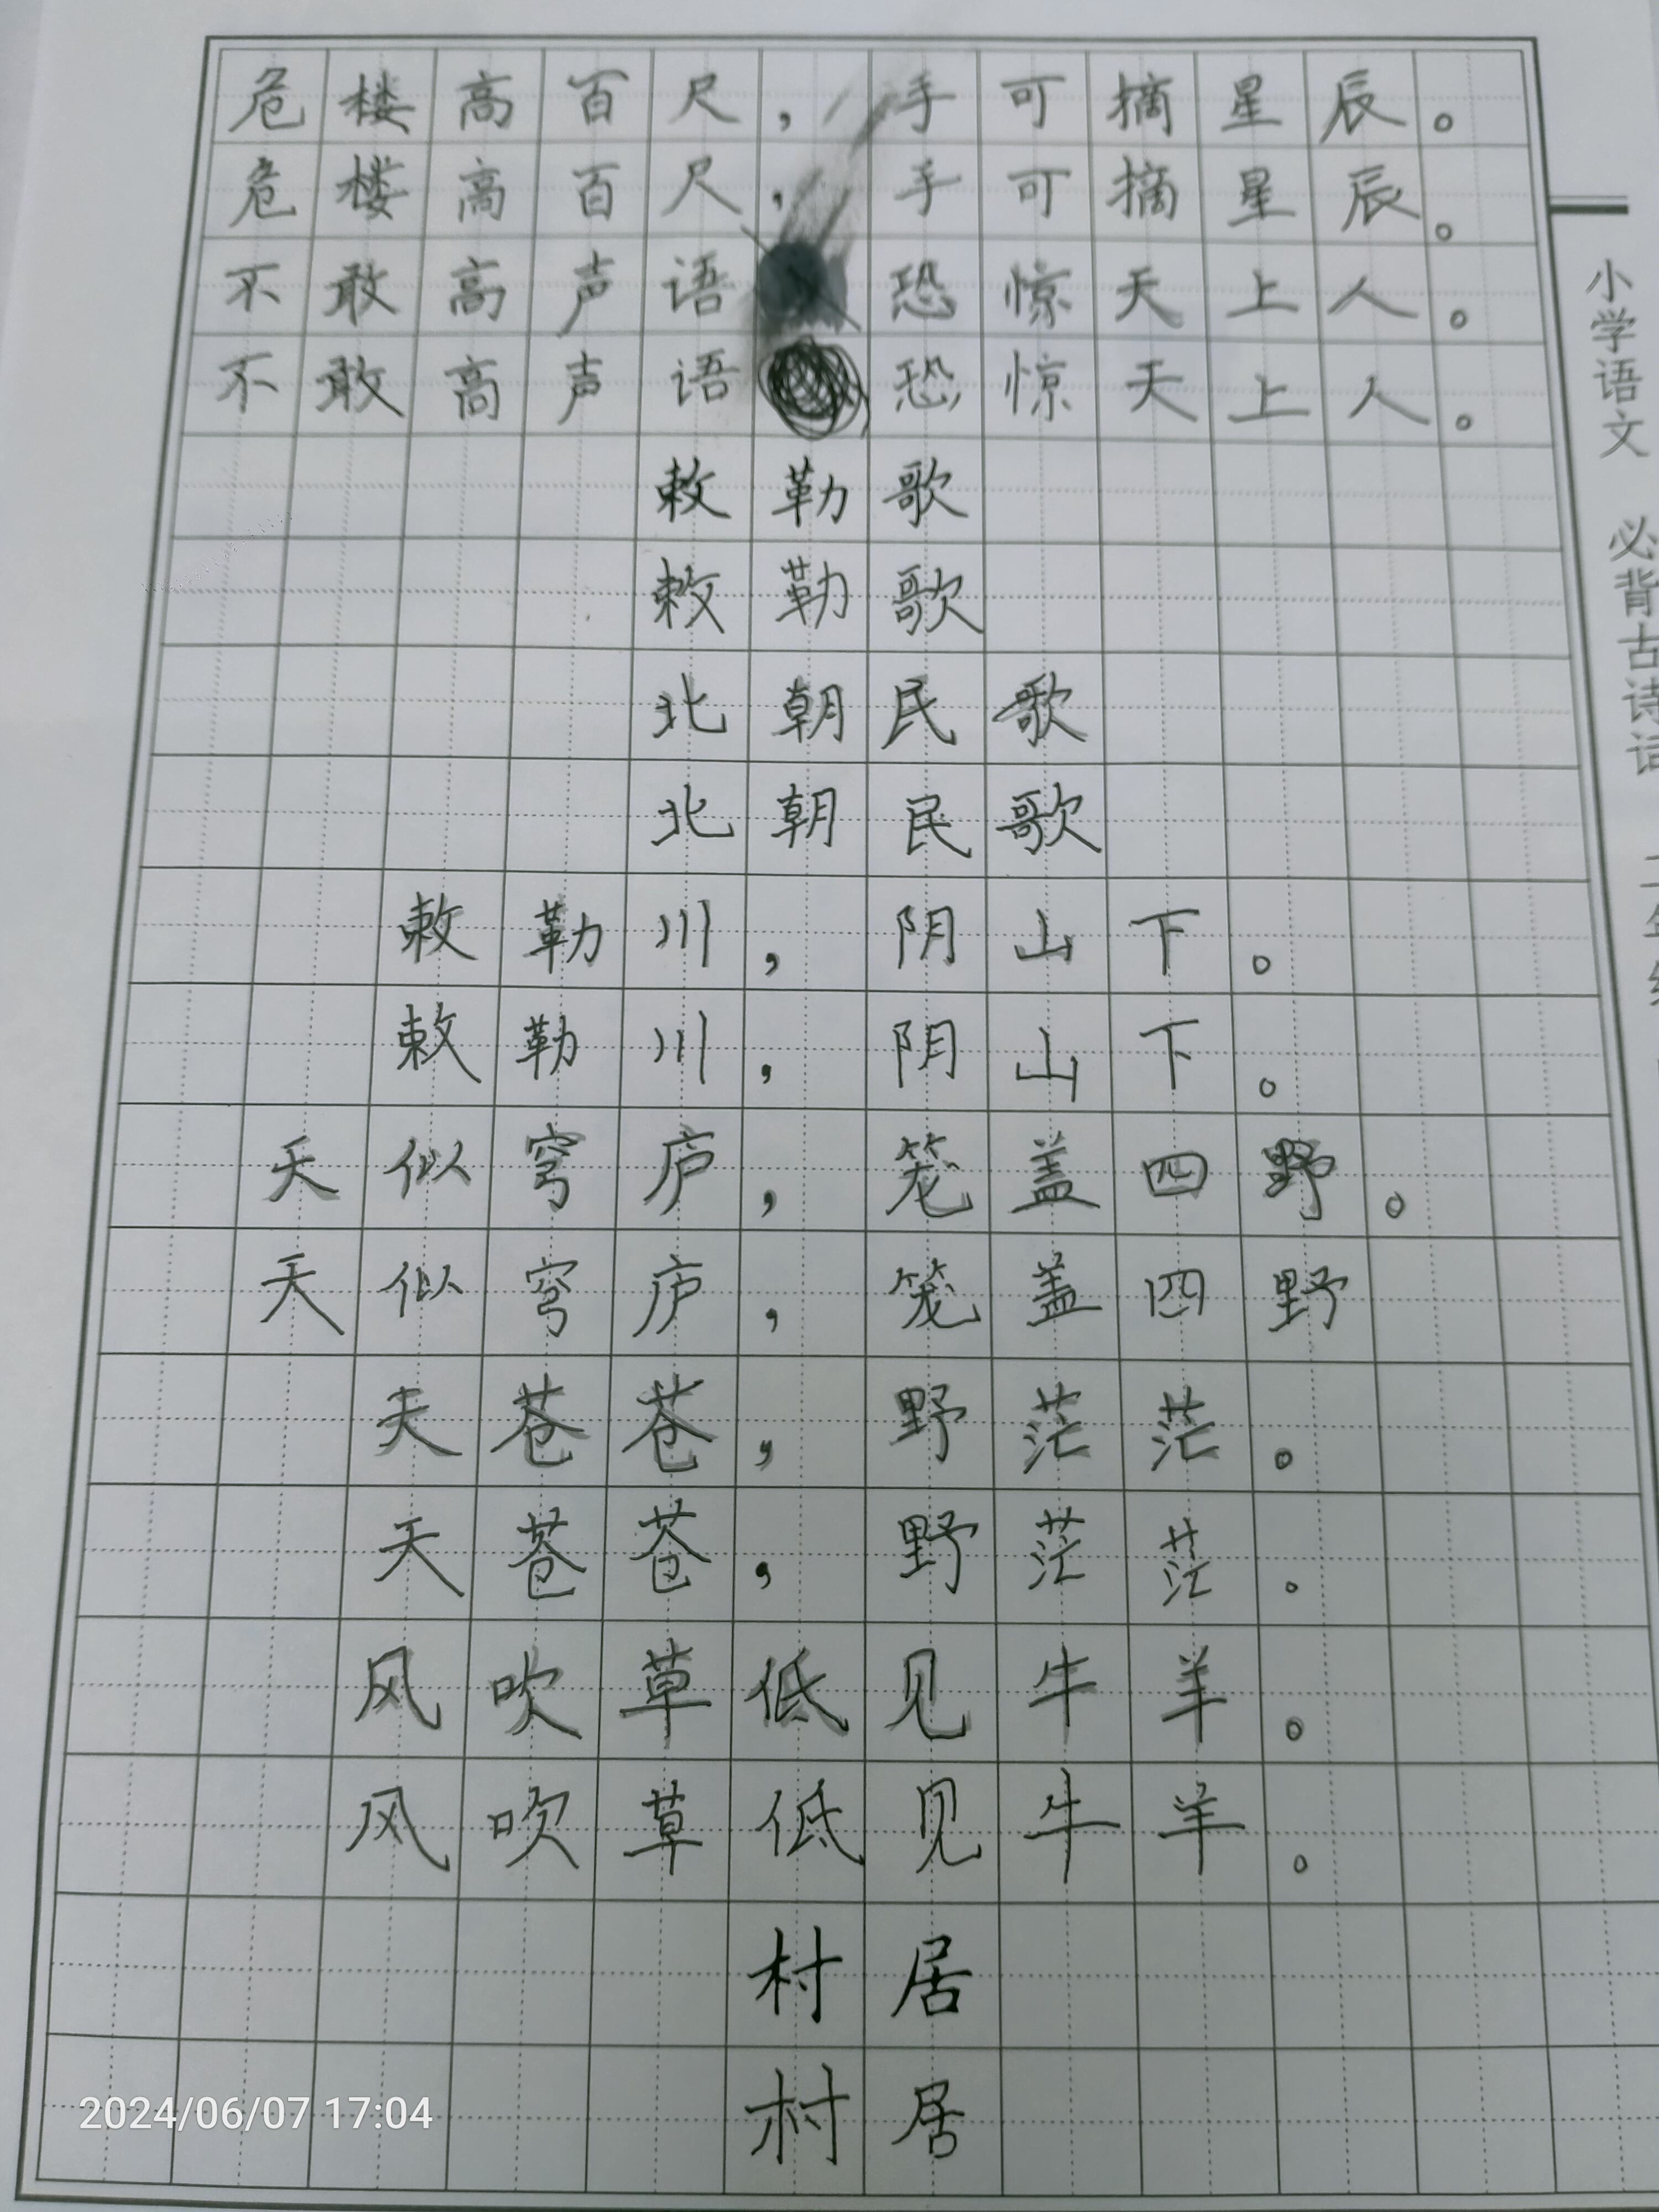 危楼高百尺，手可摘星辰。
危楼高百尺，手可摘星辰。
不敢高声语 恐惊天上人。
不敢高声语 恐惊天上人。
敕勒歌
敕勒歌
北朝民歌
北朝民歌
敕勒川，阴山下。
敕勒川，阴山下。
天似穹庐，笼盖四野。
天似穹庐，笼盖四野
天苍苍，野茫茫。
天苍苍，野茫茫。
风吹草低见牛羊。
风吹草低见牛羊。
村居
村居
小学语文 必背古诗词
2024/06/07 17:04